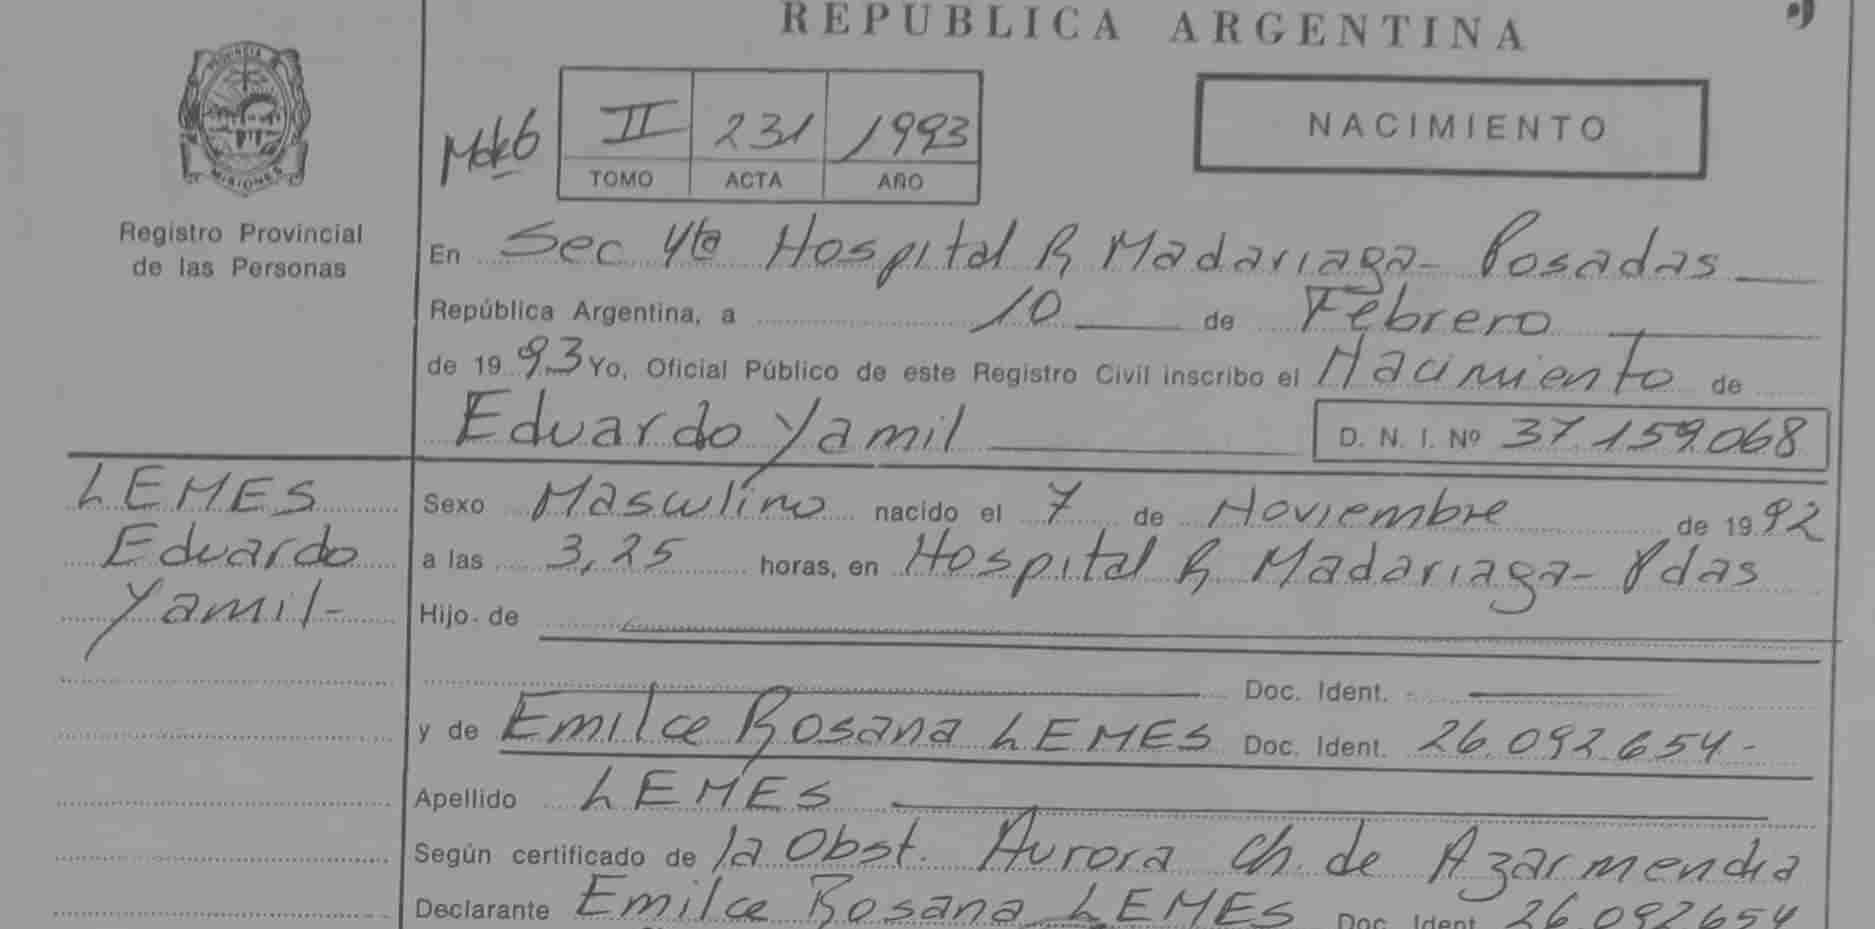 REPUBLICA ARGENTINA
PROVINCIA DE
MISIONES
Registro Provincial
de las Personas
II 231 1993
TOMO ACTA AÑO
NACIMIENTO
En Sec 4ta Hospital R Madariaga- Posadas
República Argentina, a 10 de Febrero
de 1993 Yo, Oficial Público de este Registro Civil inscribo el Nacimiento de
Eduardo Yamil D. N. I. Nº 37.159.068
LEMES
Eduardo
Yamil-
Sexo Masculino nacido el 7 de Noviembre de 1992
a las 3,25 horas, en Hospital R Madariaga- Pdas
Hijo de
Doc. Ident.
y de Emilce Rosana LEMES Doc. Ident. 26.092.654-
Apellido LEMES
Según certificado de la Obst. Aurora Ch. de Azarmendia
Declarante Emilce Rosana LEMES Doc. Ident. 26.092.654